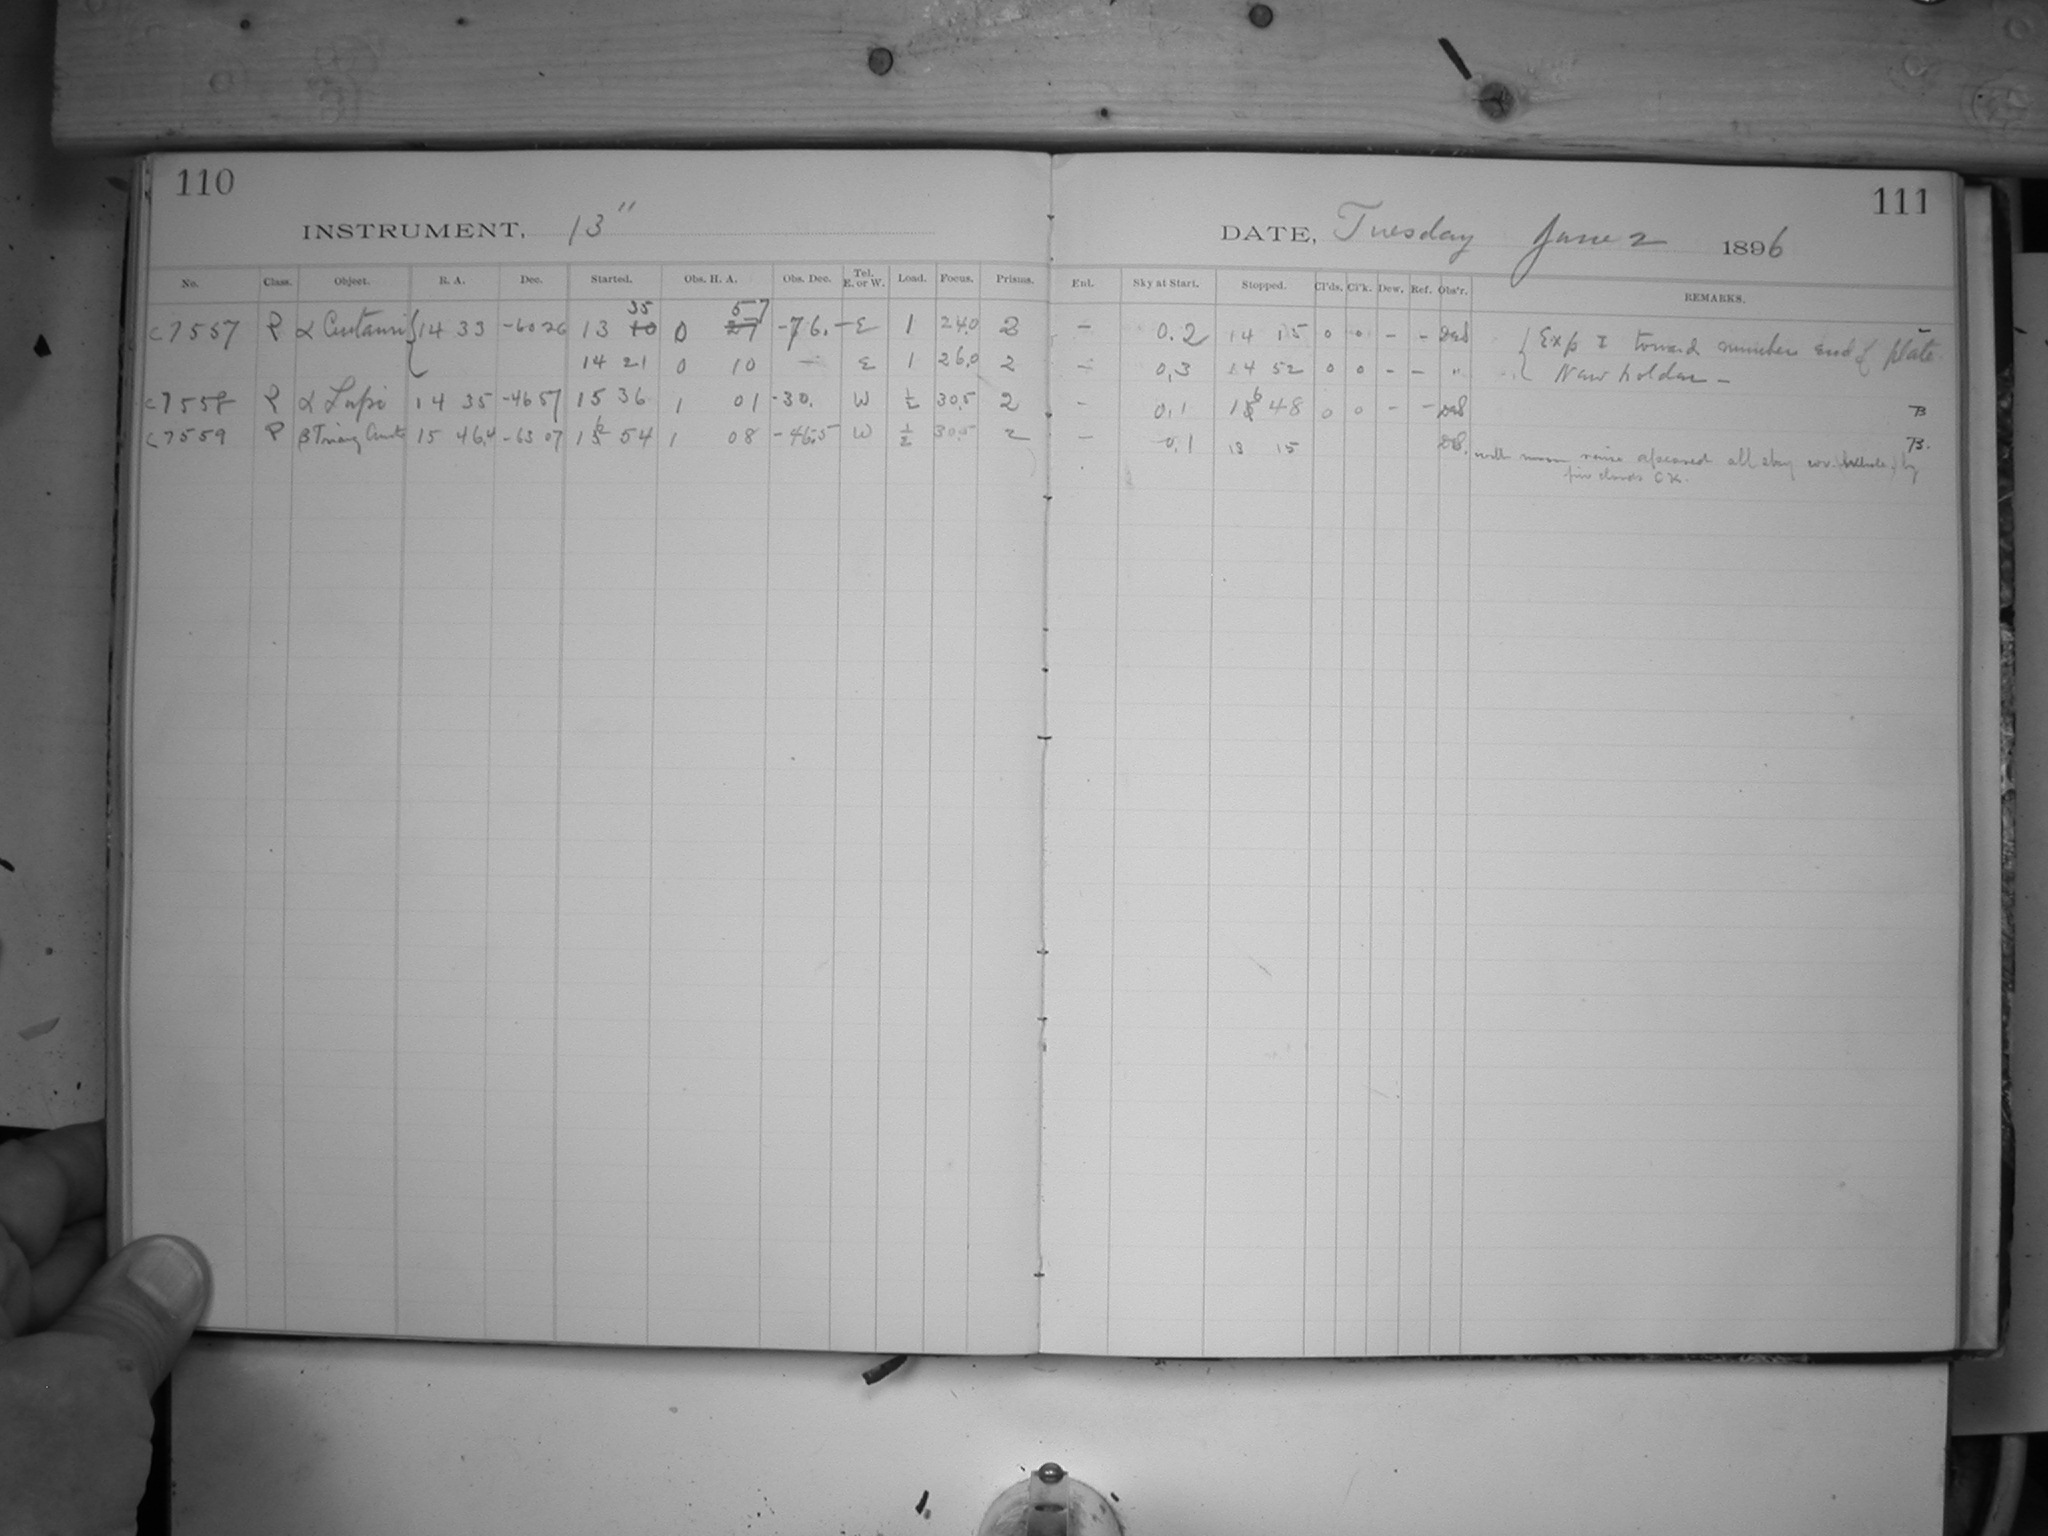 110
INSTRUMENT, 13"
No. Class. Object. R. A. Dec. Started. Obs. H. A. Obs. Dec. Tel. E. or W. Load. Focus. Prisms.
35 57
c7557 P α Centauri { 14 33 -60 26 13 10 0 27 -76. - E 1 24.0 2
14 21 0 10 — E 1 26.0 2
c7558 P α Lupi 14 35 -46 57 15 36 1 01 -30. W ½ 30.5 2
c7559 P β Triang Aust 15 46.4 -63 07 16 54 1 08 -46.5 W ½ 30.5 2
111
DATE, Tuesday June 2 1896
Enl. Sky at Start. Stopped. Cl'ds. Cl'k. Dew. Ref. Obs'r. REMARKS.
— 0.2 14 15 0 0 - - { Exp I toward number end of plate
— 0.3 14 52 0 0 - - " New holder -
— 0.1 16 48 0 0 - - B
— 0.1 18 15 B.
appeared all sky by
clouds